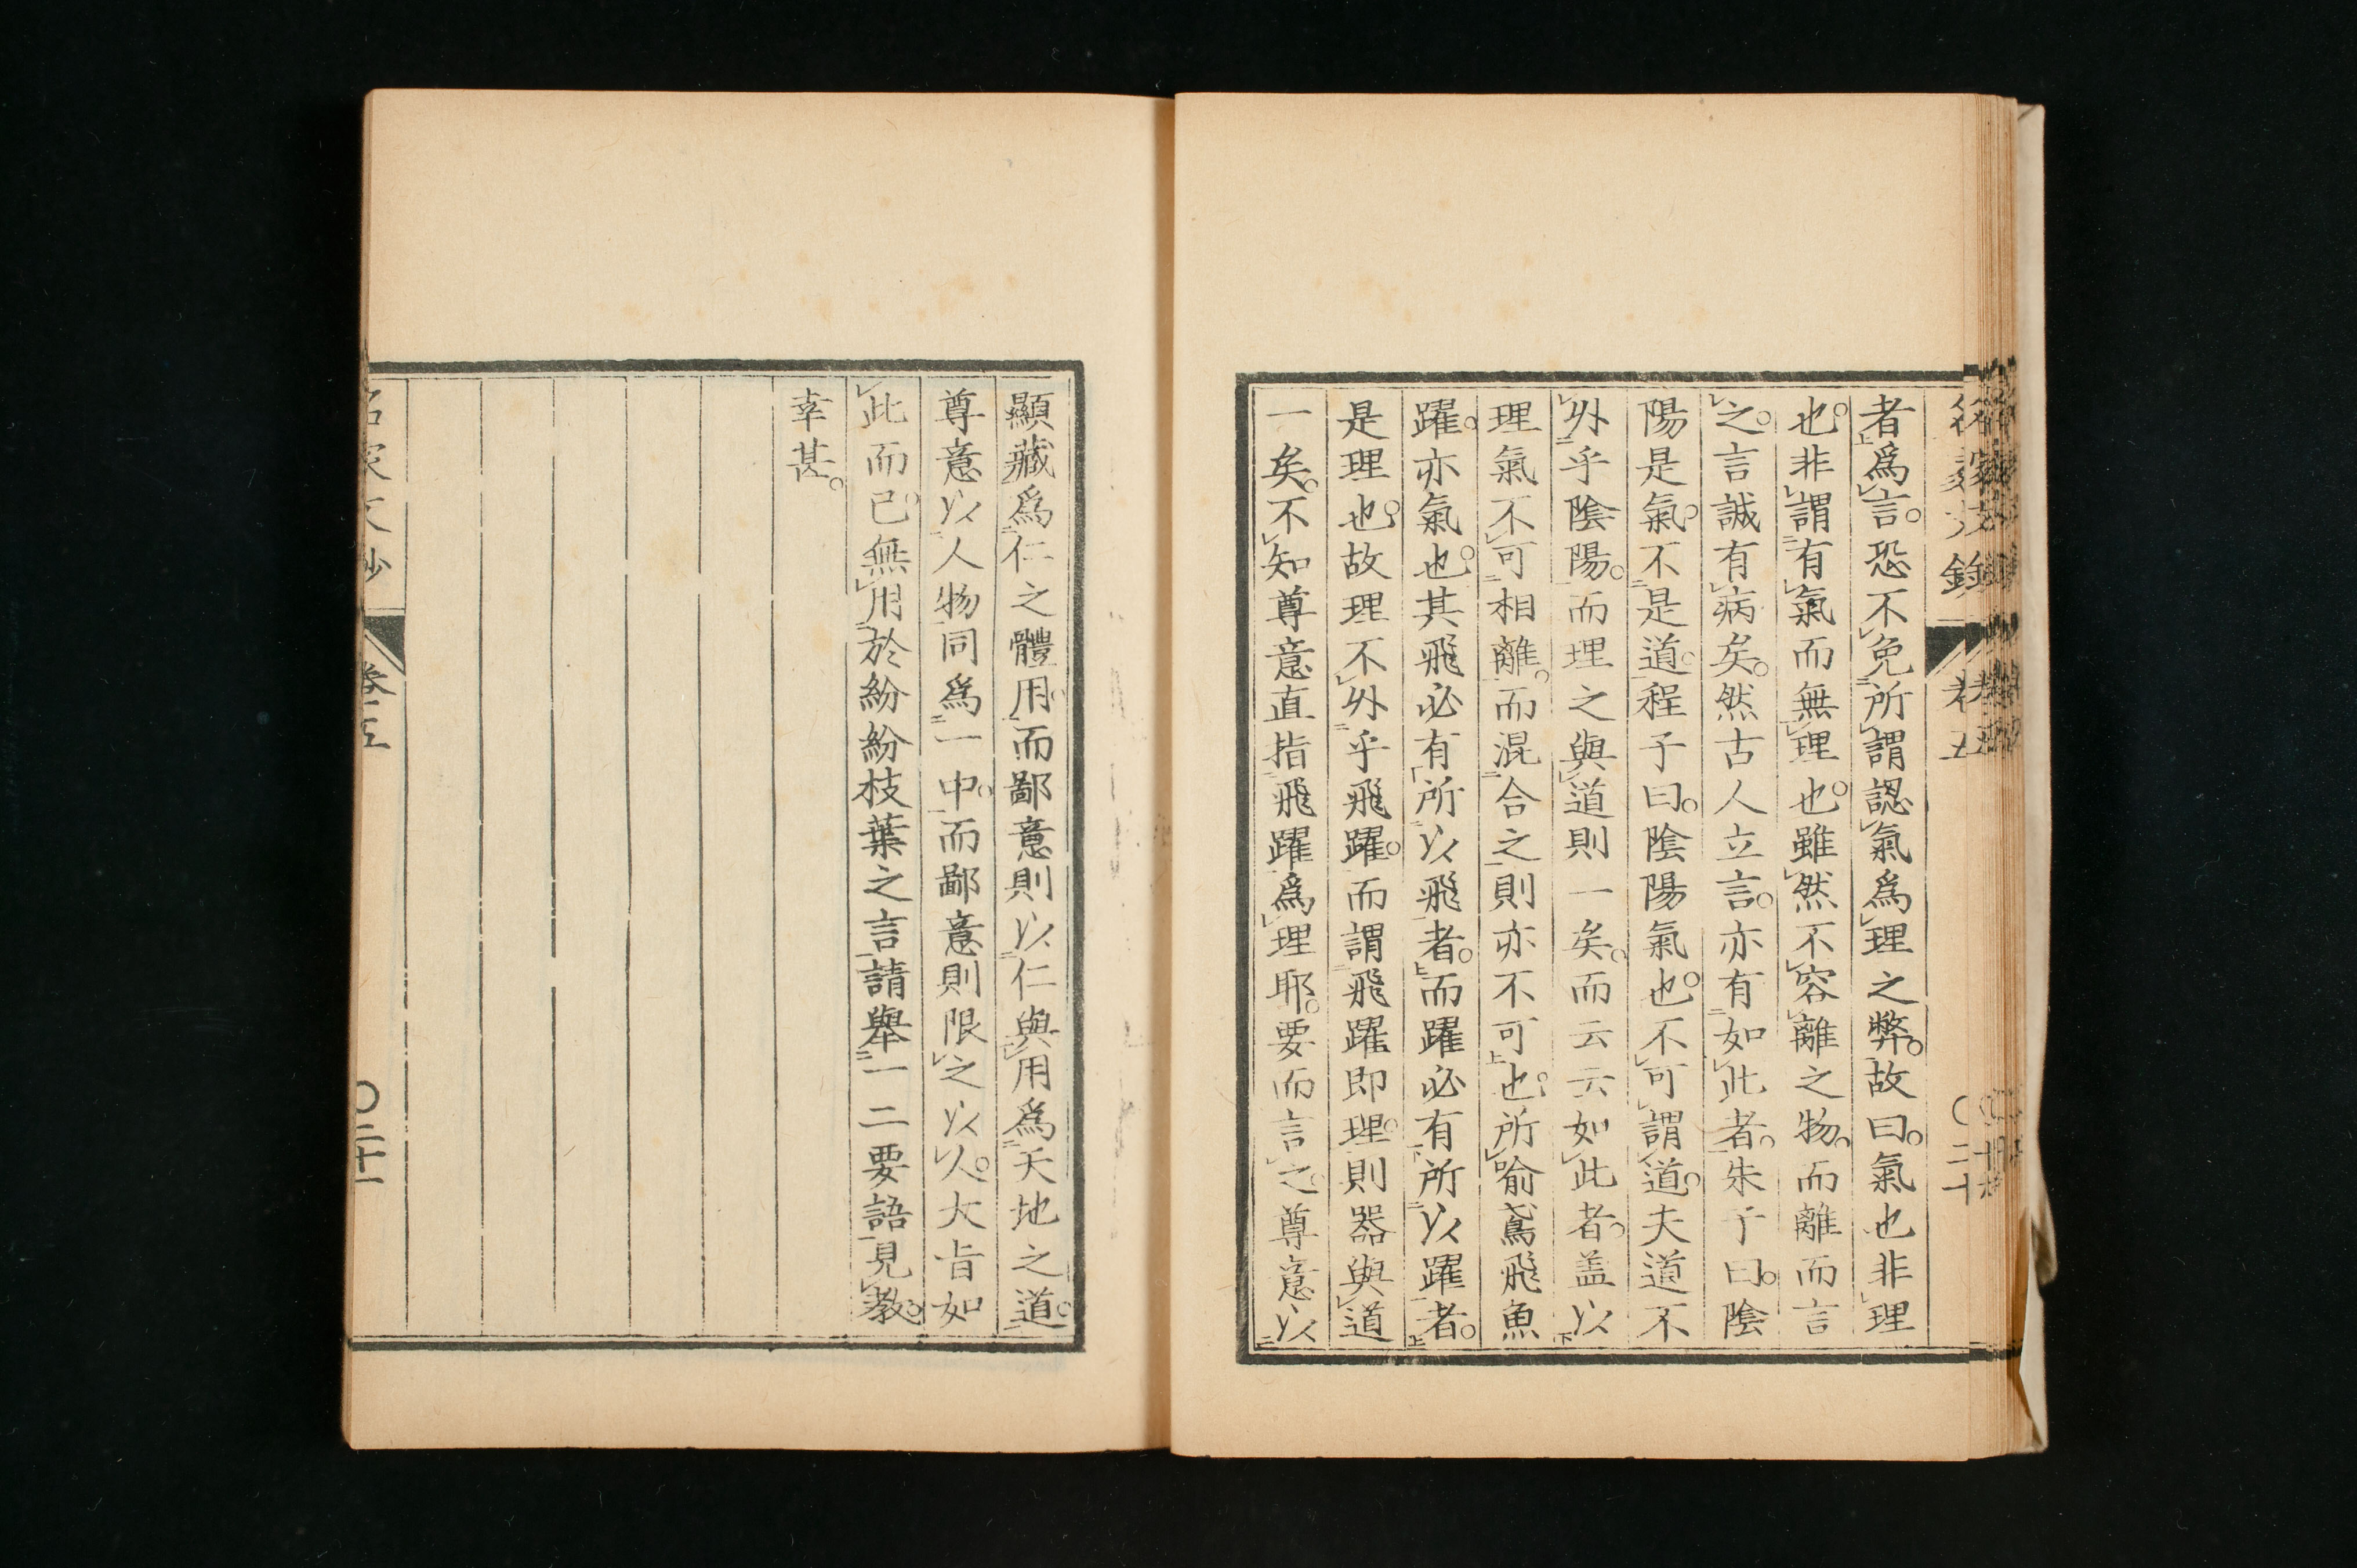 者爲言。恐不免所謂認氣爲理之弊。故曰。氣也非理
也。非謂有氣而無理也。雖然不容離之物。而離而言
之。言誠有病矣。然古人立言。亦有如此者。朱子曰。陰
陽是氣。不是道。程子曰。陰陽氣也。不可謂道。夫道不
外乎陰陽。而理之與道則一矣。而云云如此者。蓋以
理氣不可相離。而混合之則亦不可也。所喻鳶飛魚
躍。亦氣也。其飛必有所以飛者。而躍必有所以躍者。
是理也。故理不外乎飛躍。而謂飛躍即理。則器與道
一矣。不知尊意直指飛躍爲理耶。要而言之。尊意以
顯藏爲仁之體用。而鄙意則以仁與用爲天地之道。
尊意以人物同爲一中。而鄙意則限之以人。大旨如
此而已。無用於紛紛枝葉之言。請舉一二要語見教。
幸甚。
名家文抄
卷五
〇二十
卷五
〇二十一